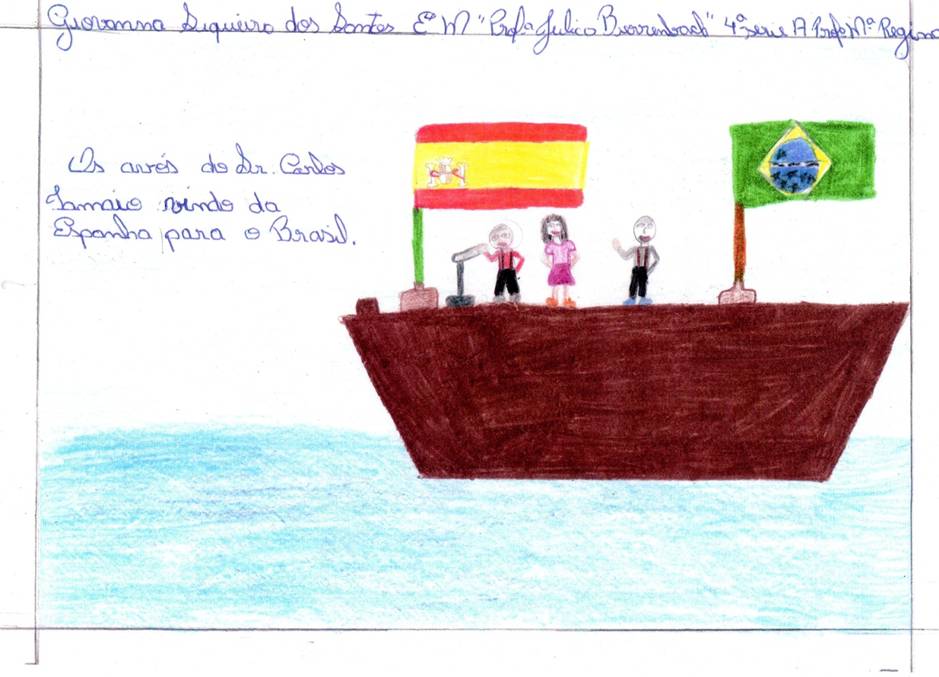 Giovanna Siqueira dos Santos Eª M "Profª Julica Bierrenbach" 4ª serie A Profª Mª Regina
Os avós do Sr. Carlos
Samaio vindo da
Espanha para o Brasil.